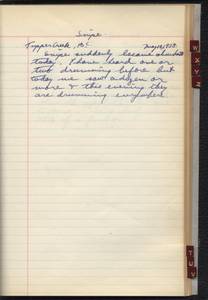 Snipe
Tupper Creek, B.C. May 1938
Snipe suddenly became abundant
today. I have heard one or
two drumming before but
today we saw a dozen or
more & this evening they
are drumming everywhere.
W
X Y
Z
T U
V